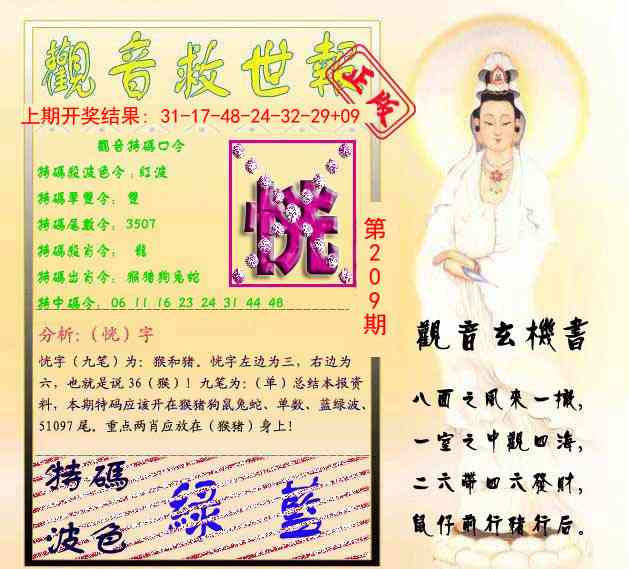 觀音救世報
正版
上期开奖结果：31-17-48-24-32-29+09
觀音特碼口令
特碼殺波色令：紅波
特碼單雙令：雙
特碼尾數令：3507
特碼殺肖令：龍
特碼出肖令：猴猪狗兔蛇
特中碼令：06 11 16 23 24 31 44 48
恍
第209期
分析：（恍）字
恍字（九笔）为：猴和猪。恍字左边为三，右边为
六，也就是说36（猴）！九笔为：（单）总结本报资
料，本期特码应该开在猴猪狗鼠兔蛇、单数、蓝绿波、
51097尾。重点两肖应放在（猴猪）身上！
特碼
波色
綠
藍
觀音玄機書
八面之風來一撒，
一室之中觀四海，
二六聯四六發財，
鼠仔前行猪行后。